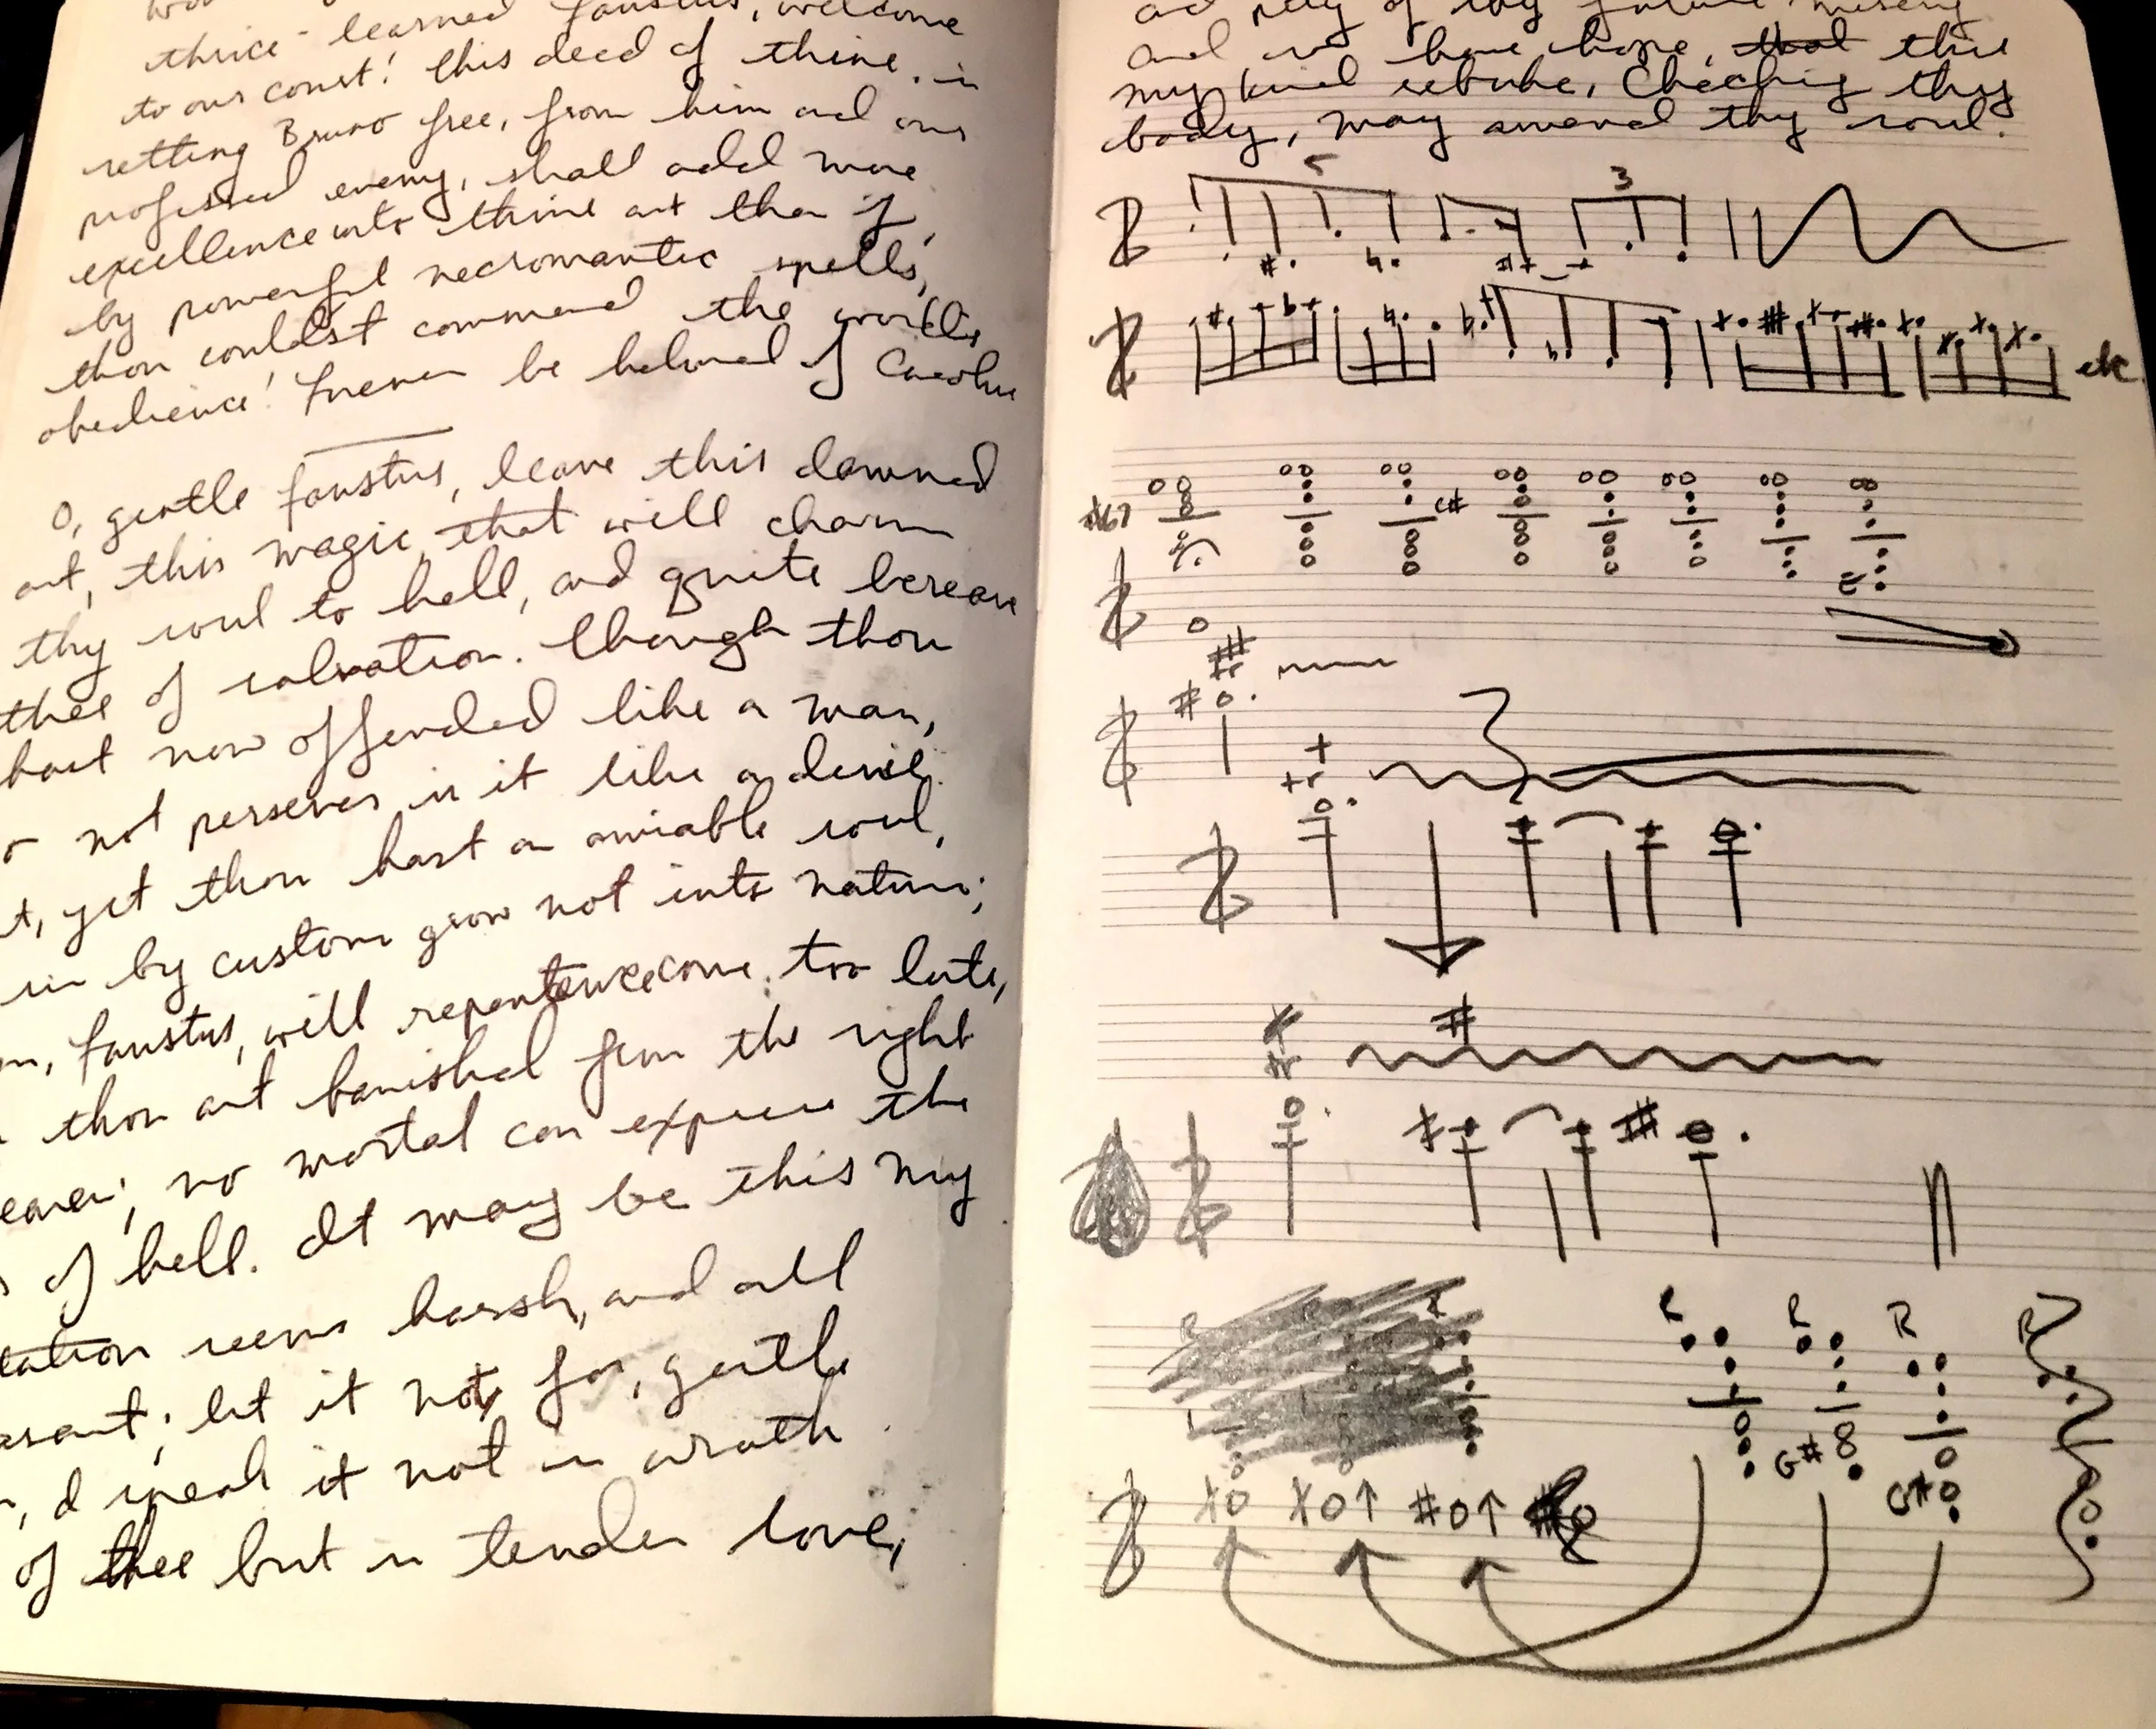 thrice-learned Faustus, welcome
to our court! This deed of thine, in
setting Bruno free, from him and our
professed enemy, shall add more
excellence unto thine art than if,
by powerful necromantic spells,
thou couldst command the world's
obedience! Forever be beloved of Carolus
O, gentle Faustus, leave this damned
art, this magic, that will charm
thy soul to hell, and quite bereave
thee of salvation. Though thou
hast now offended like a man,
not persever in it like a devil.
t, yet thou hast an amiable soul,
sin by custom grow not into nature;
n, Faustus, will repentance come too late,
thou art banished from the right
eaven; no mortal can express the
of hell. It may be this my
tation seems harsh, and all
asant; let it not, for, gentle
, I speak it not in wrath
of thee but in tender love,
and pity of thy future misery
and so have hope, that this
my kind rebuke, Checking thy
body, may amend thy soul.
5
3
etc
C#
tr
tr
tr
R
R
R
R
G#
G#